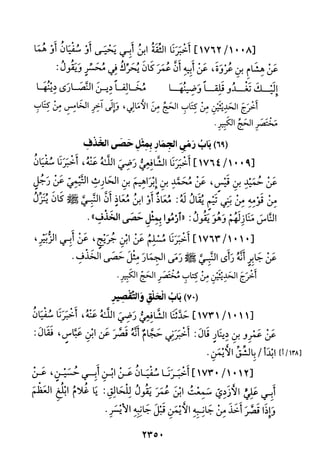 [١٧٦٢/١٠٠٨] أَخْبَرَنَا الثِّقَةُ ابنُ أَبِي يَحْيَى أَوْ سُفْيَانُ أَوْ هُمَا
عَنْ هِشَامِ بنِ عُرْوَةَ، عَنْ أَبِيهِ أَنَّ عُمَرَ كَانَ يُحَرِّكُ فِي مُحَسِّرٍ وَيَقُولُ:
إِلَيْكَ تَعْدُو قَلِقاً وَضِينُهَا مُخَالِفاً دِينَ النَّصَارَى دِينُهَا
أَخْرَجَ الحَدِيثَيْنِ مِنْ كِتَابِ الحَجِّ مِنَ الأَمَالِي، وَإِلَى آخِرِ الخَامِسِ مِنْ كِتَابِ
مُخْتَصَرِ الحَجِّ الكَبِيرِ.
(٦٩) بَابُ رَمْيِ الجِمَارِ بِمِثْلِ حَصَى الخَذْفِ
[١٧٦٤/١٠٠٩] أَخْبَرَنَا الشَّافِعِيُّ رَضِيَ اللَّهُ عَنْهُ، أَخْبَرَنَا سُفْيَانُ
عَنْ حُمَيْدِ بنِ قَيْسٍ، عَنْ مُحَمَّدِ بنِ إِبْرَاهِيمَ بنِ الحَارِثِ التَّيْمِيِّ عَنْ رَجُلٍ
مِنْ قَوْمِهِ مِنْ بَنِي تَيْمٍ يُقَالُ لَهُ: مُعَاذٌ أَوْ ابنُ مُعَاذٍ أَنَّ النَّبِيَّ ﷺ كَانَ يُنَزِّلُ
النَّاسَ مَنَازِلَهُمْ وَهُوَ يَقُولُ: «ارْمُوا بِمِثْلِ حَصَى الخَذْفِ».
[١٧٦٣/١٠١٠] أَخْبَرَنَا مُسْلِمٌ عَنْ ابْنِ جُرَيْجٍ، عَنْ أَبِي الزُّبَيْرِ،
عَنْ جَابِرٍ أَنَّهُ رَأَى النَّبِيَّ ﷺ رَمَى الجِمَارَ مِثْلَ حَصَى الخَذْفِ.
أَخْرَجَ الحَدِيثَيْنِ مِنْ كِتَابِ مُخْتَصَرِ الحَجِّ الكَبِيرِ.
(٧٠) بَابُ الحَلْقِ وَالتَّقْصِيرِ
[١٧٣١/١٠١١] حَدَّثَنَا الشَّافِعِيُّ رَضِيَ اللَّهُ عَنْهُ، أَخْبَرَنَا سُفْيَانُ
عَنْ عَمْرِو بنِ دِينَارٍ قَالَ: أَخْبَرَنِي حَجَّامٌ أَنَّهُ قَصَّرَ عَنِ ابْنِ عَبَّاسٍ، فَقَالَ:
[١٣٨/أ] ابْدَأْ / بِالشِّقِّ الأَيْمَنِ.
[١٧٣٠/١٠١٢] أَخْبَرَنَا سُفْيَانُ عَنْ ابْنِ أَبِي حُسَيْنٍ، عَنْ
أَبِي عَلِيٍّ الأَزْدِيِّ سَمِعْتُ ابْنَ عُمَرَ يَقُولُ لِلْحَالِقِ: يَا غُلَامُ ابْلُغِ العَظْمَ
وَإِذَا قَصَّرَ أَخَذَ مِنْ جَانِبِهِ الأَيْمَنِ قَبْلَ جَانِبِهِ الأَيْسَرِ.
٢٣٥٠